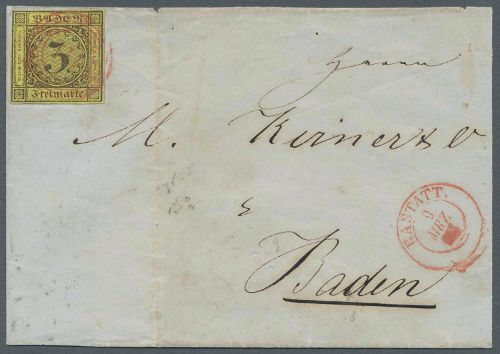 BADEN
3
Freimarke
Herrn
M. Kirner & C
Baden
RASTATT.
9
MRZ.